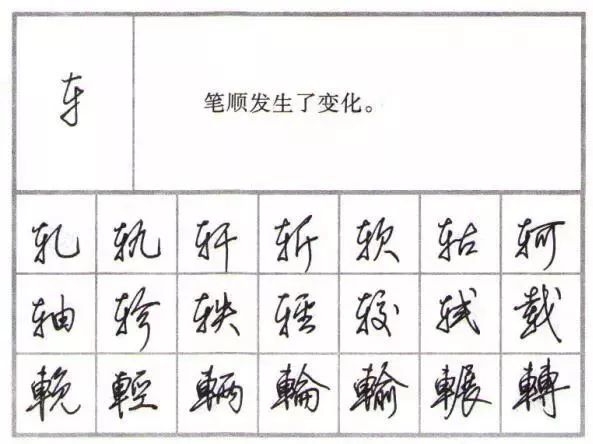 车 笔顺发生了变化。
轧 轨 轩 斩 软 轱 轲
轴 轸 轶 较 轼 载
輓 輕 輛 輪 輸 輾 轉